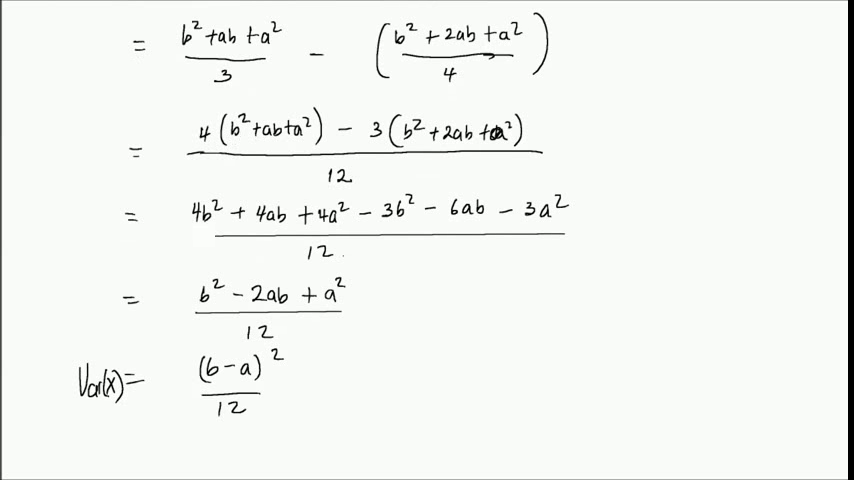 = b² + ab + a² / 3 - (b² + 2ab + a² / 4)
= 4(b² + ab + a²) - 3(b² + 2ab + a²) / 12
= 4b² + 4ab + 4a² - 3b² - 6ab - 3a² / 12
= b² - 2ab + a² / 12
Var(x) = (b - a)² / 12